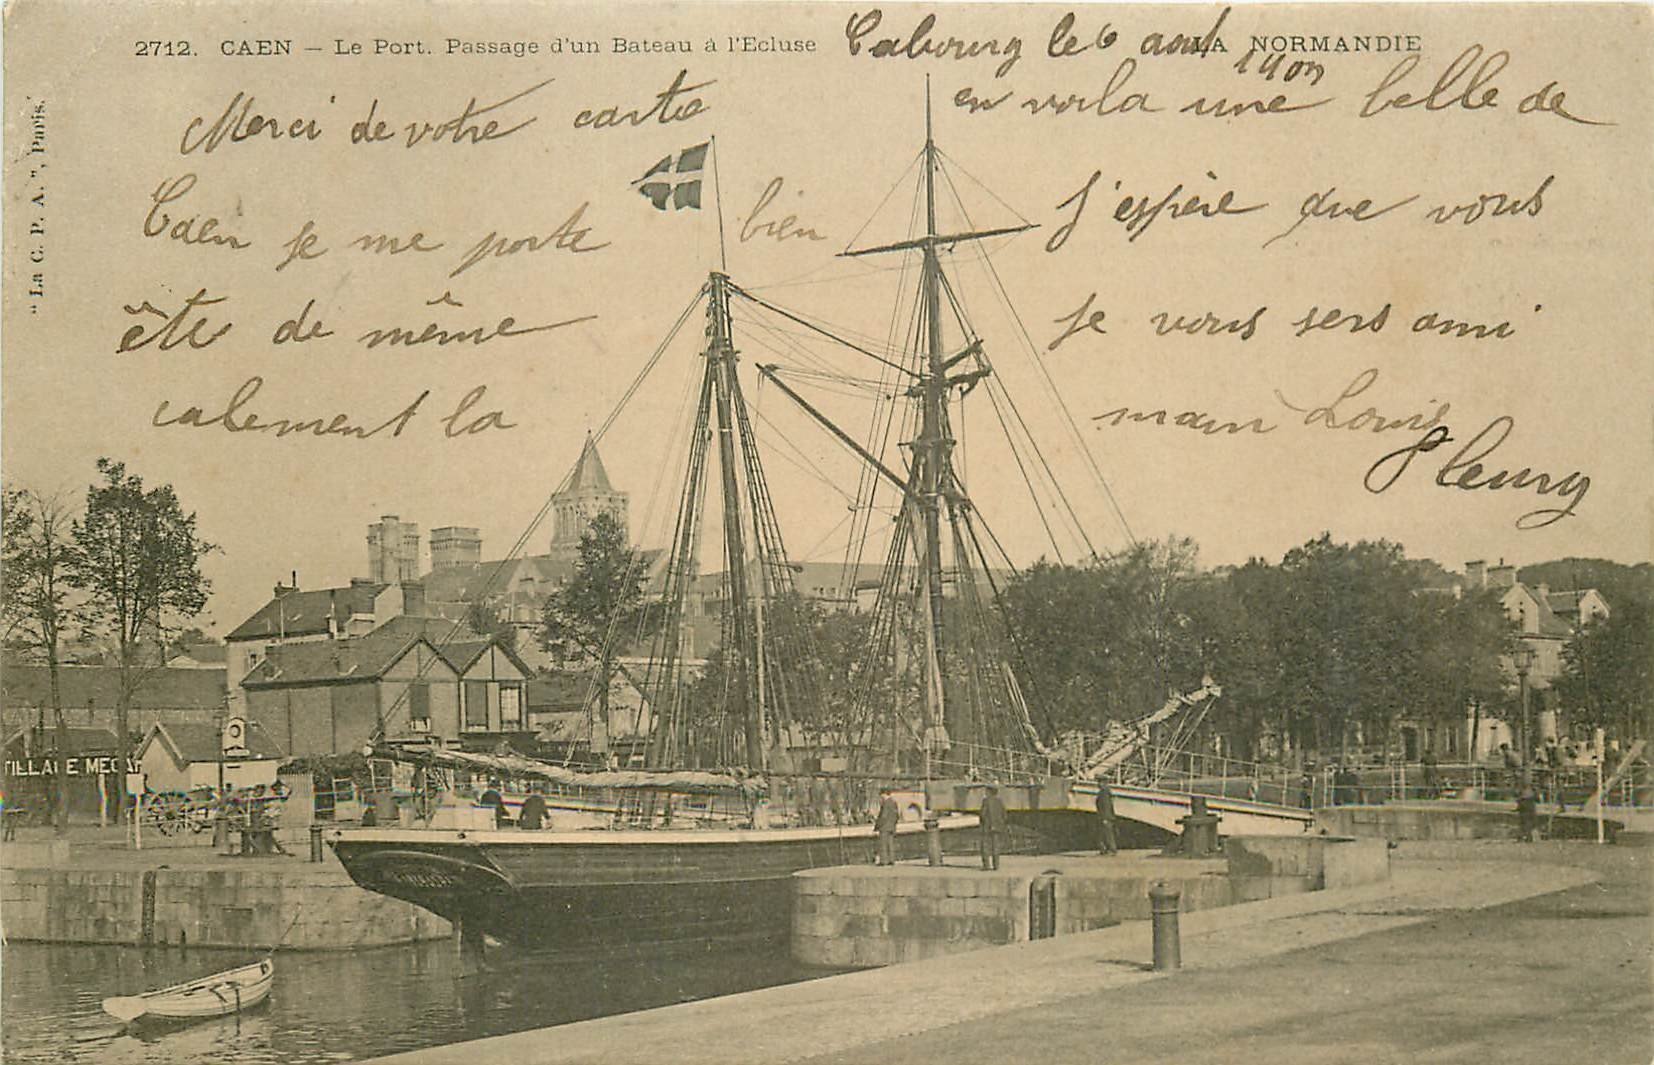 2712. CAEN — Le Port. Passage d'un Bateau à l'Ecluse
LA NORMANDIE
Cabourg le 6 aout
Merci de votre carte en voila une belle de
Caen je me porte bien j'espère que vous
ête de même je vous sers ami
calement la main Louis
Fleury
"La C. P. A.", Paris.